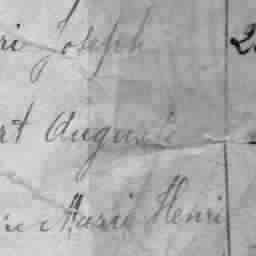 ri Joseph 2
rt Auguste
ie Marie Henri